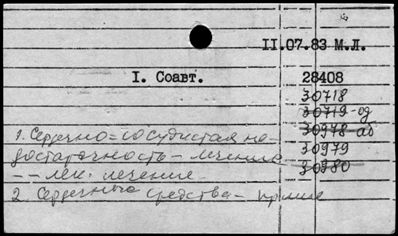 II.07.83 М.Л.
I. Соавт.
28408
30718
30719-од
30978-аб
30979
30980
1. Сердечно-сосудистая не-
достаточность - лечение
-- лек. лечение
2. Сердечные средства -